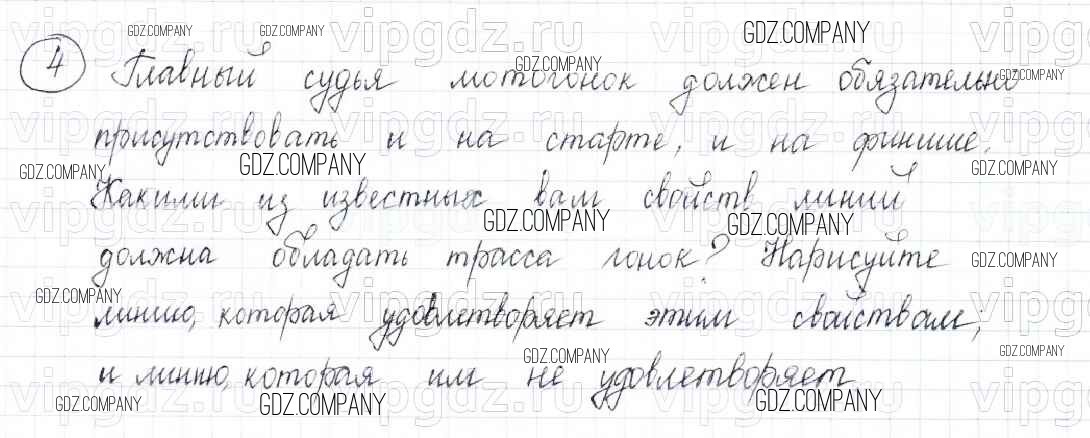 4 Главный судья мотогонок должен обязательно
присутствовать и на старте, и на финише.
Какими из известных вам свойств линий
должна обладать трасса гонок? Нарисуйте
линию, которая удовлетворяет этим свойствам;
и линию, которая им не удовлетворяет